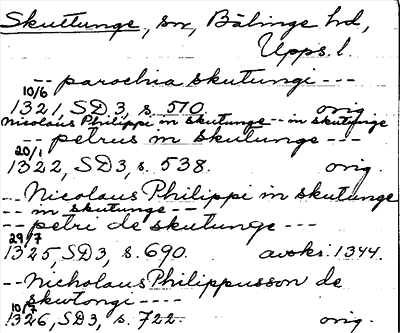 Skuttunge, sn, Bälinge hd,
Upps. l.
-- parochia skutungi ---
10/6
1321, SD 3, s. 510. orig.
Nicolaus Philippi in skutunge -- in skutunge
-- petrus in skutunge ---
20/1
1322, SD 3, s. 538. orig.
-- Nicolaus Philippi in skutunge
-- in skutunge ---
-- petri de skutunge ---
29/7
1325, SD 3, s. 690. avskr. 1344.
-- Nicholaus Philippusson de
skwtongi ----
10/7
1326, SD 3, s. 722. orig.